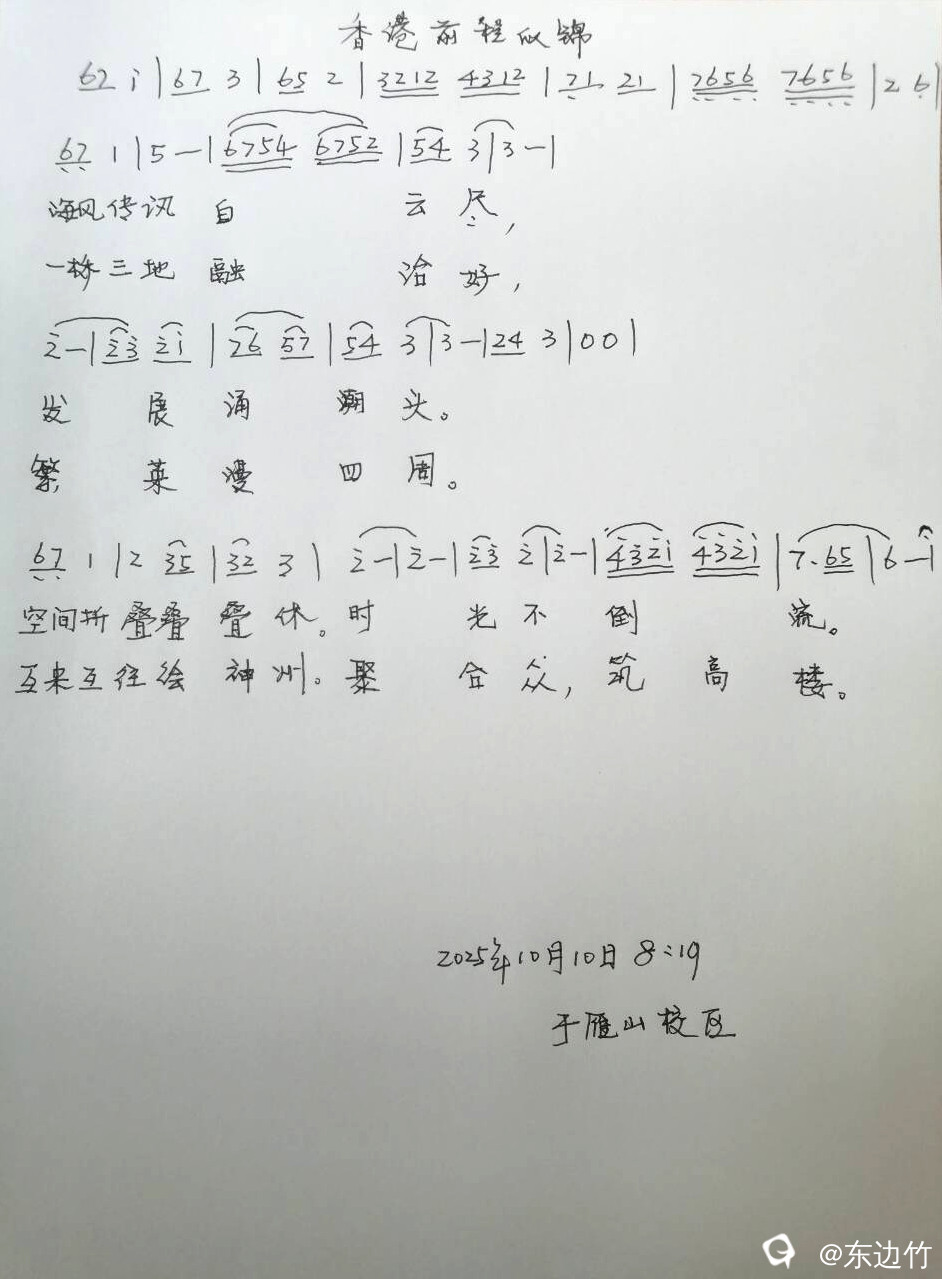 香港前程似锦
67 i | 67 3 | 65 2 | 3212 4312 | 71 21 | 7656 7656 | 2 6 |
67 1 | 5 — | 6754 6752 | 54 3 | 3 — |
海风传讯 自 云 尽,
一桥三地 融 洽 好,
2 — | 23 21 | 76 57 | 54 3 | 3 — | 24 3 | 0 0 |
发 展 涌 潮 头。
繁 荣 漫 四 周。
67 1 | 2 35 | 32 3 | 2 — | 2 — | 23 2 | 2 — | 4321 4321 | 7. 65 | 6 — |
空间折 叠叠 叠 休。时 光 不 倒 流。
互来互往绘 神 州。聚 合 众, 筑 高 楼。
2025年10月10日 8:19
于雁山校区
@东边竹